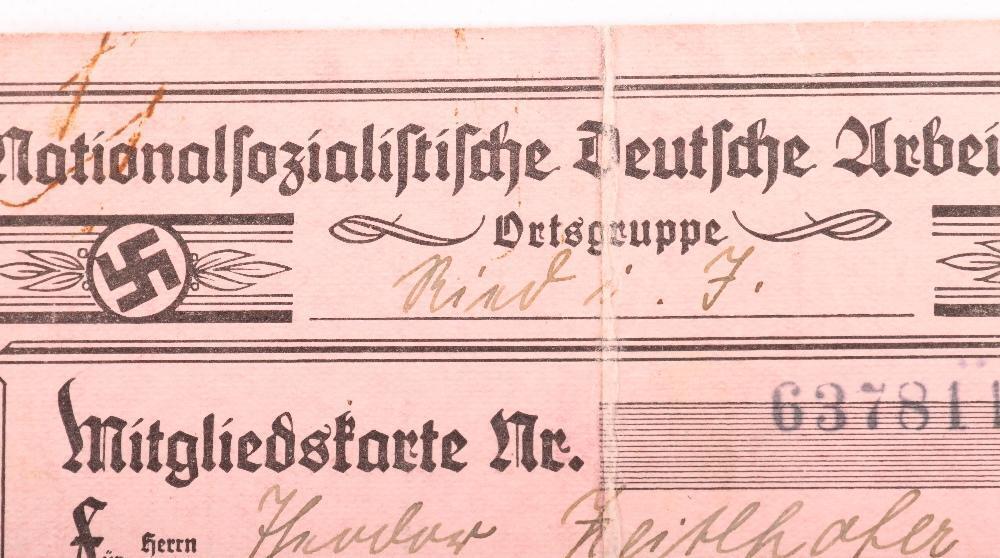 Nationalsozialistische Deutsche Arbei
Ortsgruppe
Ried i. I.
Mitgliedskarte Nr.
637811
Für Herrn Theodor